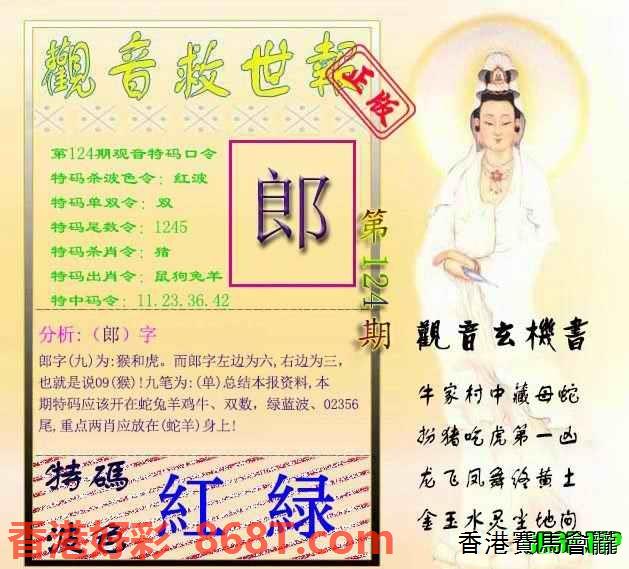 觀音救世報
正版
第124期观音特码口令
特码杀波色令：红波
特码单双令：双
特码尾数令：1245
特码杀肖令：猪
特码出肖令：鼠狗兔羊
特中码令：11.23.36.42
郎
第124期
分析:（郎）字
郎字(九)为:猴和虎。而郎字左边为六,右边为三，
也就是说09(猴)!九笔为:(单)总结本报资料,本
期特码应该开在蛇兔羊鸡牛、双数，绿蓝波、02356
尾,重点两肖应放在(蛇羊)身上!
特碼
波色
紅 緑
觀音玄機書
牛家村中藏母蛇
扮猪吃虎第一凶
龙飞凤舞终黄土
金玉水灵生地间
香港好彩 8681.com
香港賽馬會